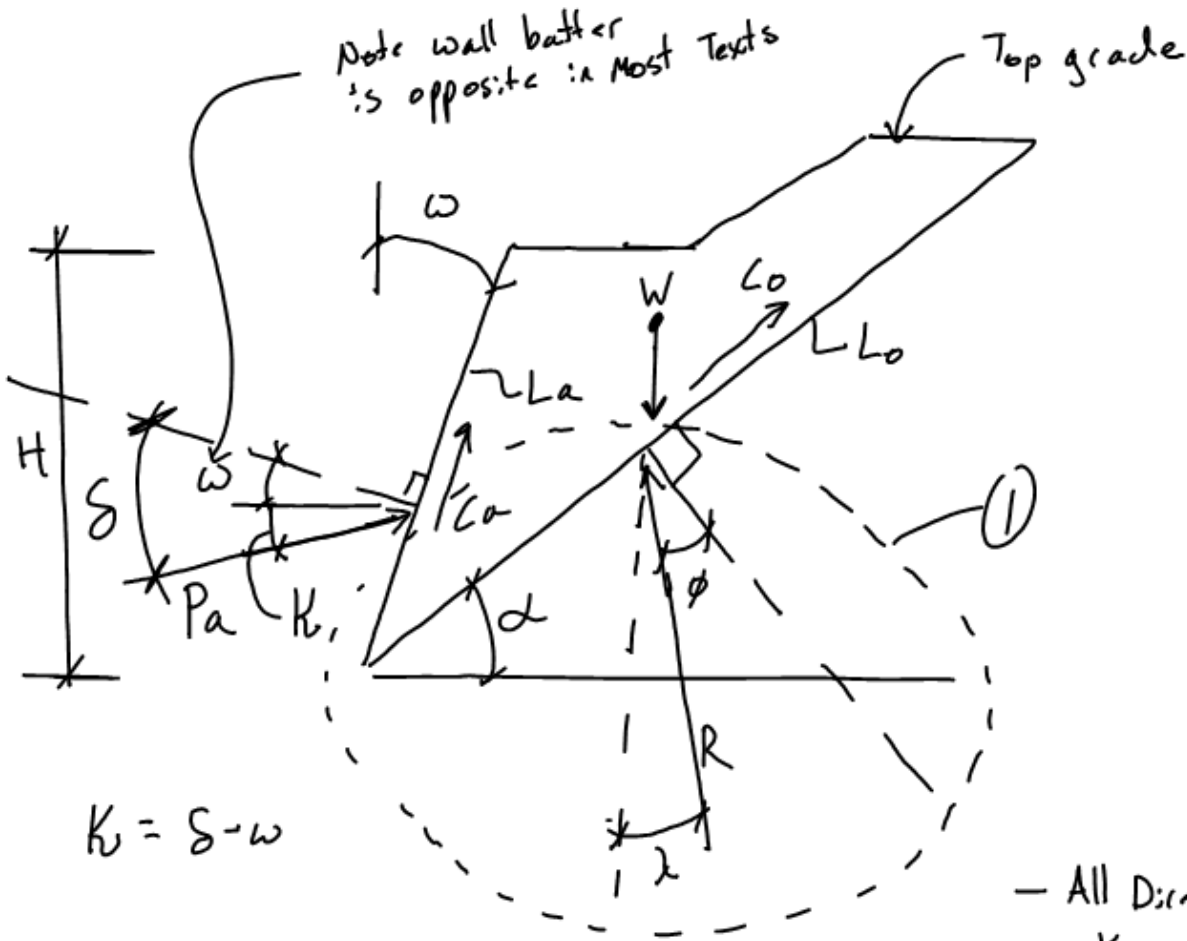 Note wall batter
is opposite in Most Texts
Top grade
ω
W
Co
Lo
La
H
ω
δ
Ca
①
Pa
K₁
α
ϕ
R
K₁ = δ-ω
λ